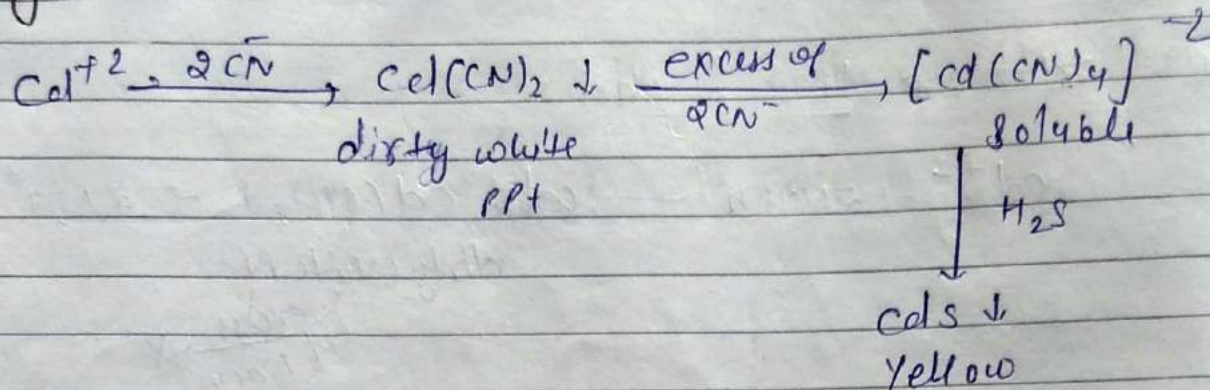 Cd+2 2CN̄ → Cd(CN)2 ↓ excess of 2CN- → [Cd(CN)4]-2
dirty white soluble
ppt
H2S
Cds ↓
Yellow